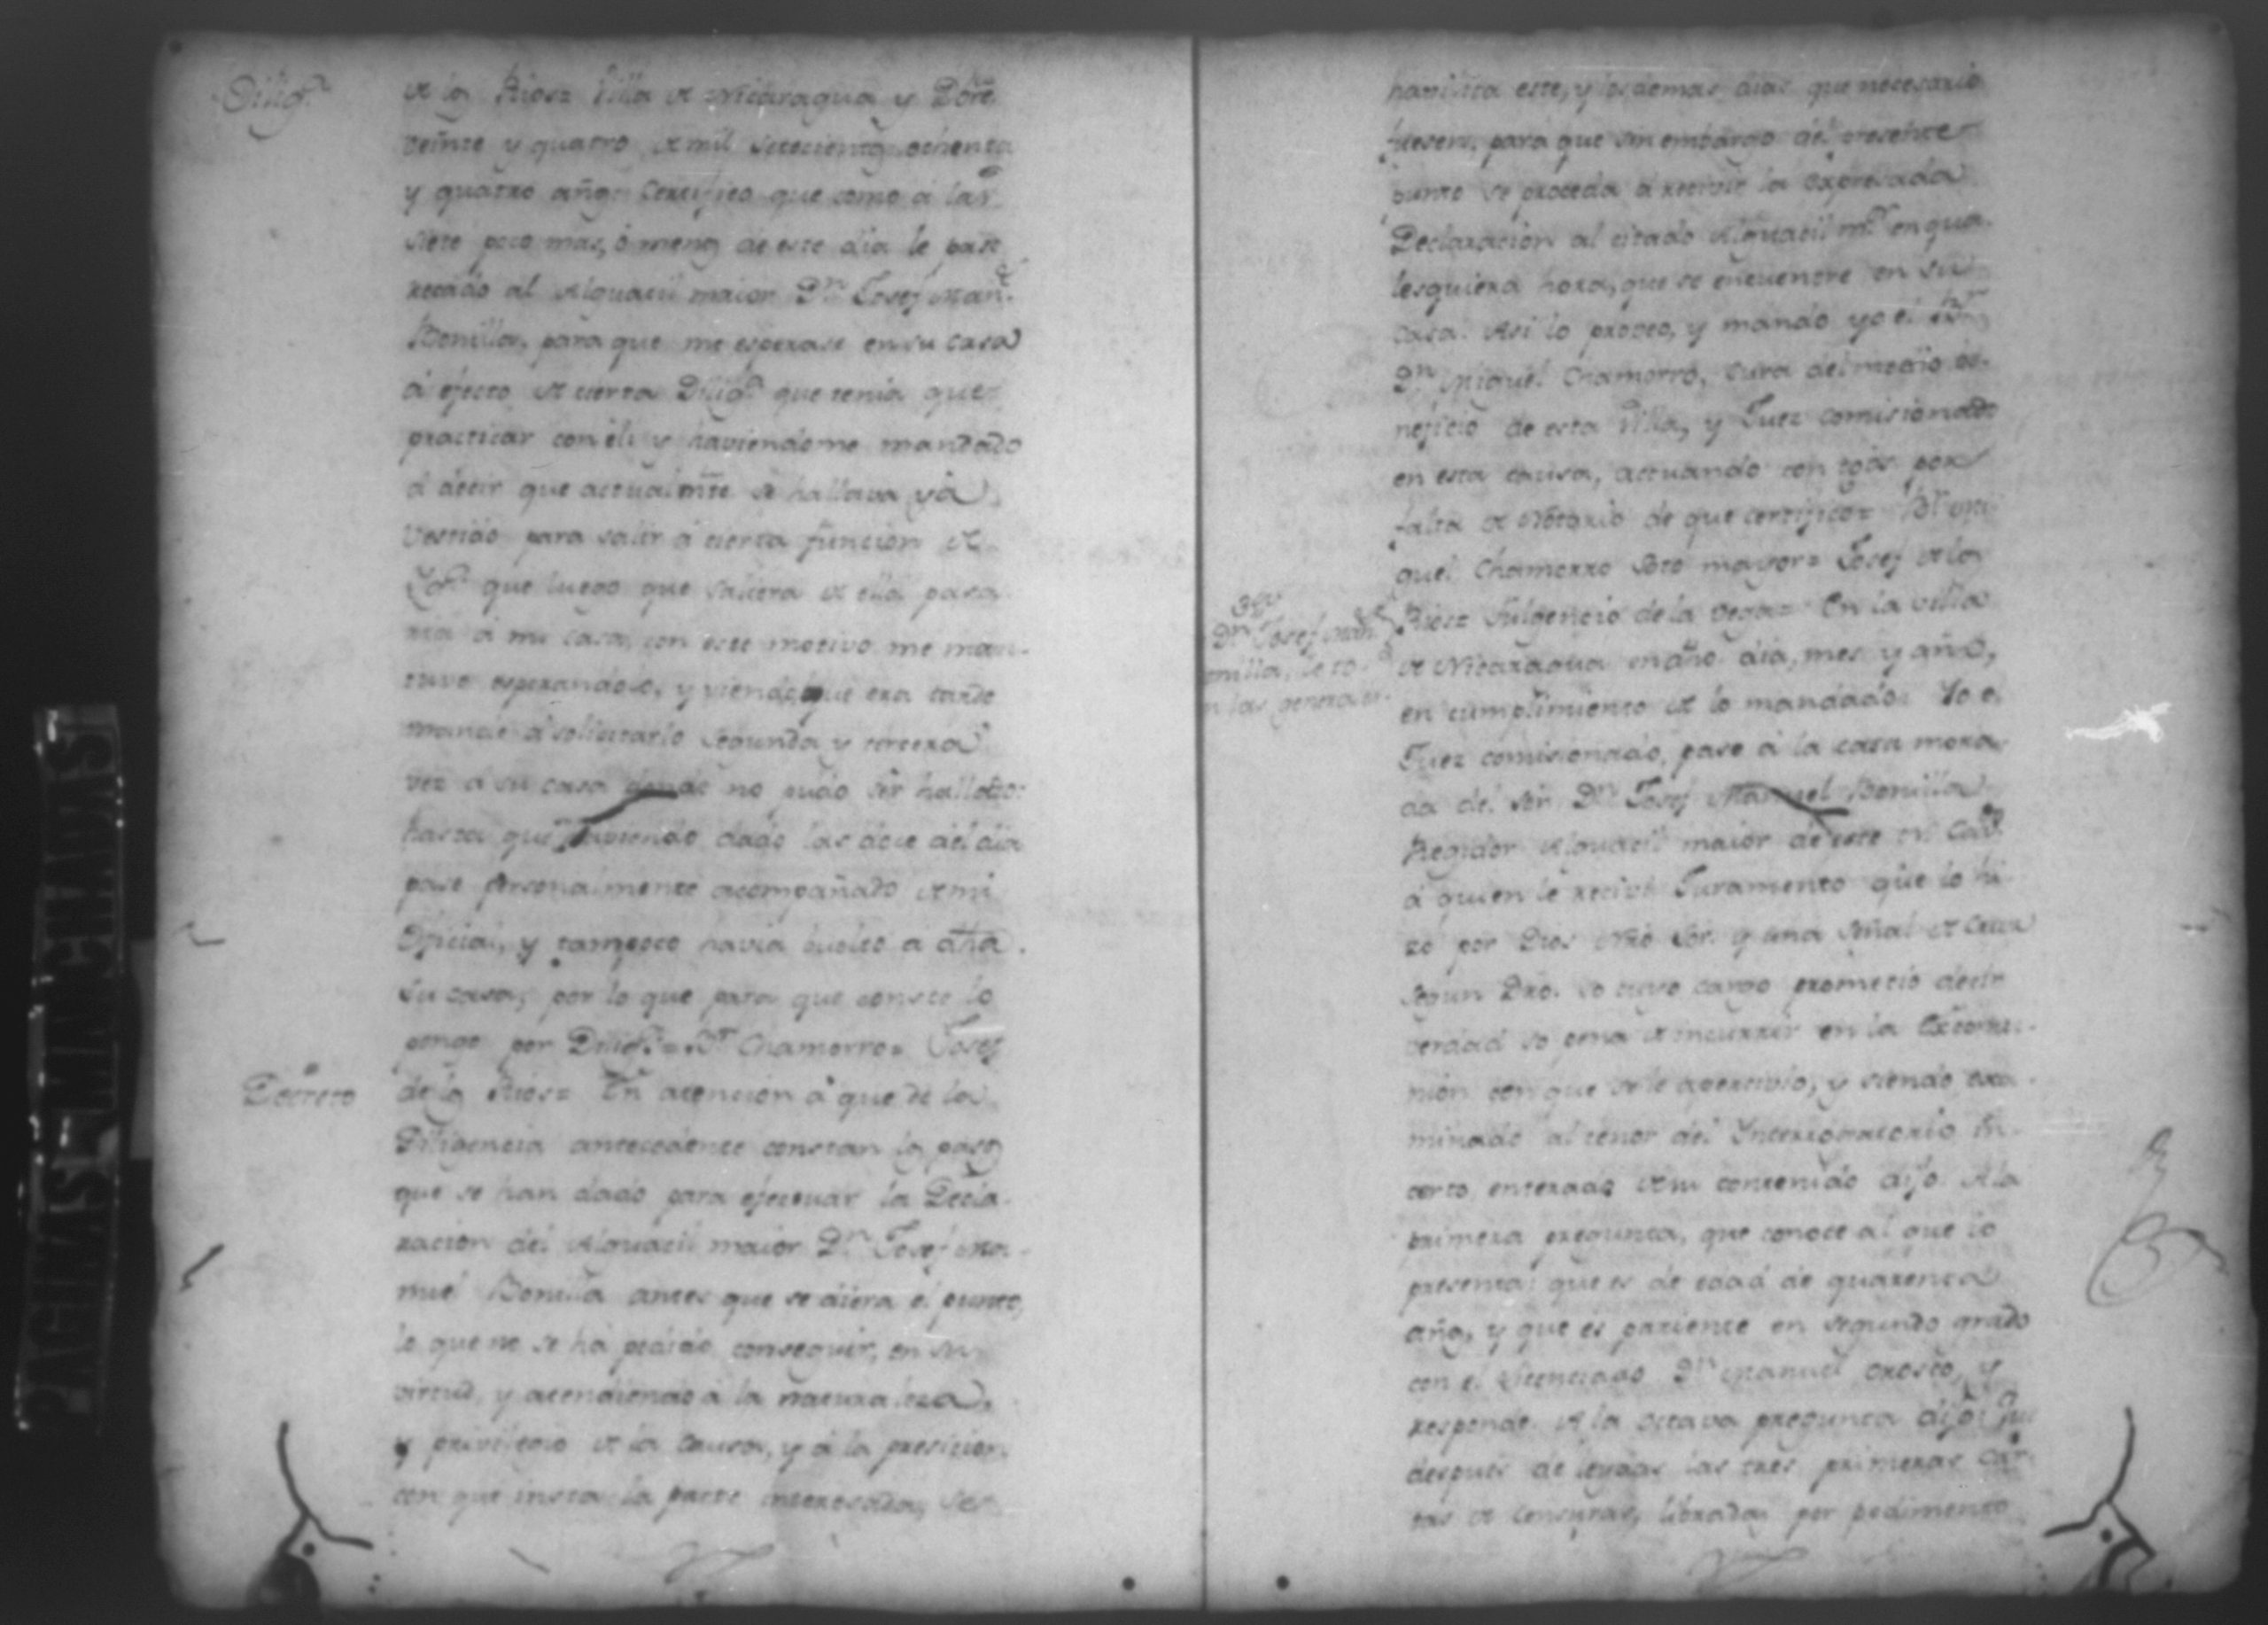 Dilig.ª
de los Rios= Villa de Nicaragua y Dbre
veinte y quatro de mil setecientos ochenta
y quatro años. Certifico que como á las
siete poco mas, ó menos de este dia le pasé
recado al Alguacil maior Dn. Josef Man.l
Bonilla, para que me esperase en su casa
á efecto de cierta Dilig.ª que tenia que
practicar con él: y haviendome mandado
á decir que actualmte. se hallava yá
vestido para salir á cierta funcion de
que luego que saliera de ella pasa
ria á mi casa, con este motivo me man-
tuve esperandolo, y viendo que era tarde
mandé á solicitarlo segunda y tercera
vez á su casa donde no pudo ser hallado:
hasta que haviendo dado las doce del dia
pasé personalmente acompañado de mi
Oficial, y tampoco havia buelto á dha.
su casa; por lo que para que conste lo
pongo por Dilig.ª= Br. Chamorro= Josef
Decreto
de los Rios= En atencion á que de la
Diligencia antecedente constan los pasos
que se han dado para efectuar la Decla-
racion del Alguacil maior Dn. Josef Ma-
nuel Bonilla antes que se diera el punto,
lo que no se há podido conseguir, en su
virtud, y atendiendo á la naturaleza,
y privilegio de la causa, y á la precision
con que insta la parte interesada, se
havilita este, y los demas dias que necesario
fuesen, para que sin embargo del presente
punto se proceda á recivir la expresada
Declaracion al citado Alguacil mor. en qua-
lesquiera hora, que se encuentre en su
casa. Asi lo proveo, y mando yo el
Dn. Miguel Chamorro, Cura del medio be-
neficio de esta Villa, y Juez comisionado
en esta causa, actuando con tgos. por
falta de Notario de que certifico= Br. Mi-
guel Chamorro Soto mayor= Josef de los
Dn. Josef Man.l
Bonilla, le to-
n las generales.
Rios= Fulgencio de la Vega= En la villa
de Nicaragua en dho. dia, mes y año,
en cumplimiento de lo mandado: Yo el
Juez comisionado, pasé á la casa mora-
da del Sor. Dn. Josef Manuel Bonilla
Regidor Alguacil maior de este Cavdo.
á quien le recivi Juramento que lo hi-
zo por Dios Nro. Sor. y una señal de Cruz
segun Dro. so cuyo cargo prometió decir
verdad so pena de incurrir en la Excomu-
nion con que se le apercivió, y siendo exa-
minado al tenor del Interrogatorio in-
certo, enterado de su contenido dijo. A la
primera pregunta, que conoce al que lo
presenta: que es de edad de quarenta
años, y que es pariente en segundo grado
con el Licenciado Dn. Manuel Orosco, y
responde. A la octava pregunta dijo: Que
despues de leydas las tres primeras Car-
tas de Censuras, libradas por pedimento
PAGINAS MANCHADAS